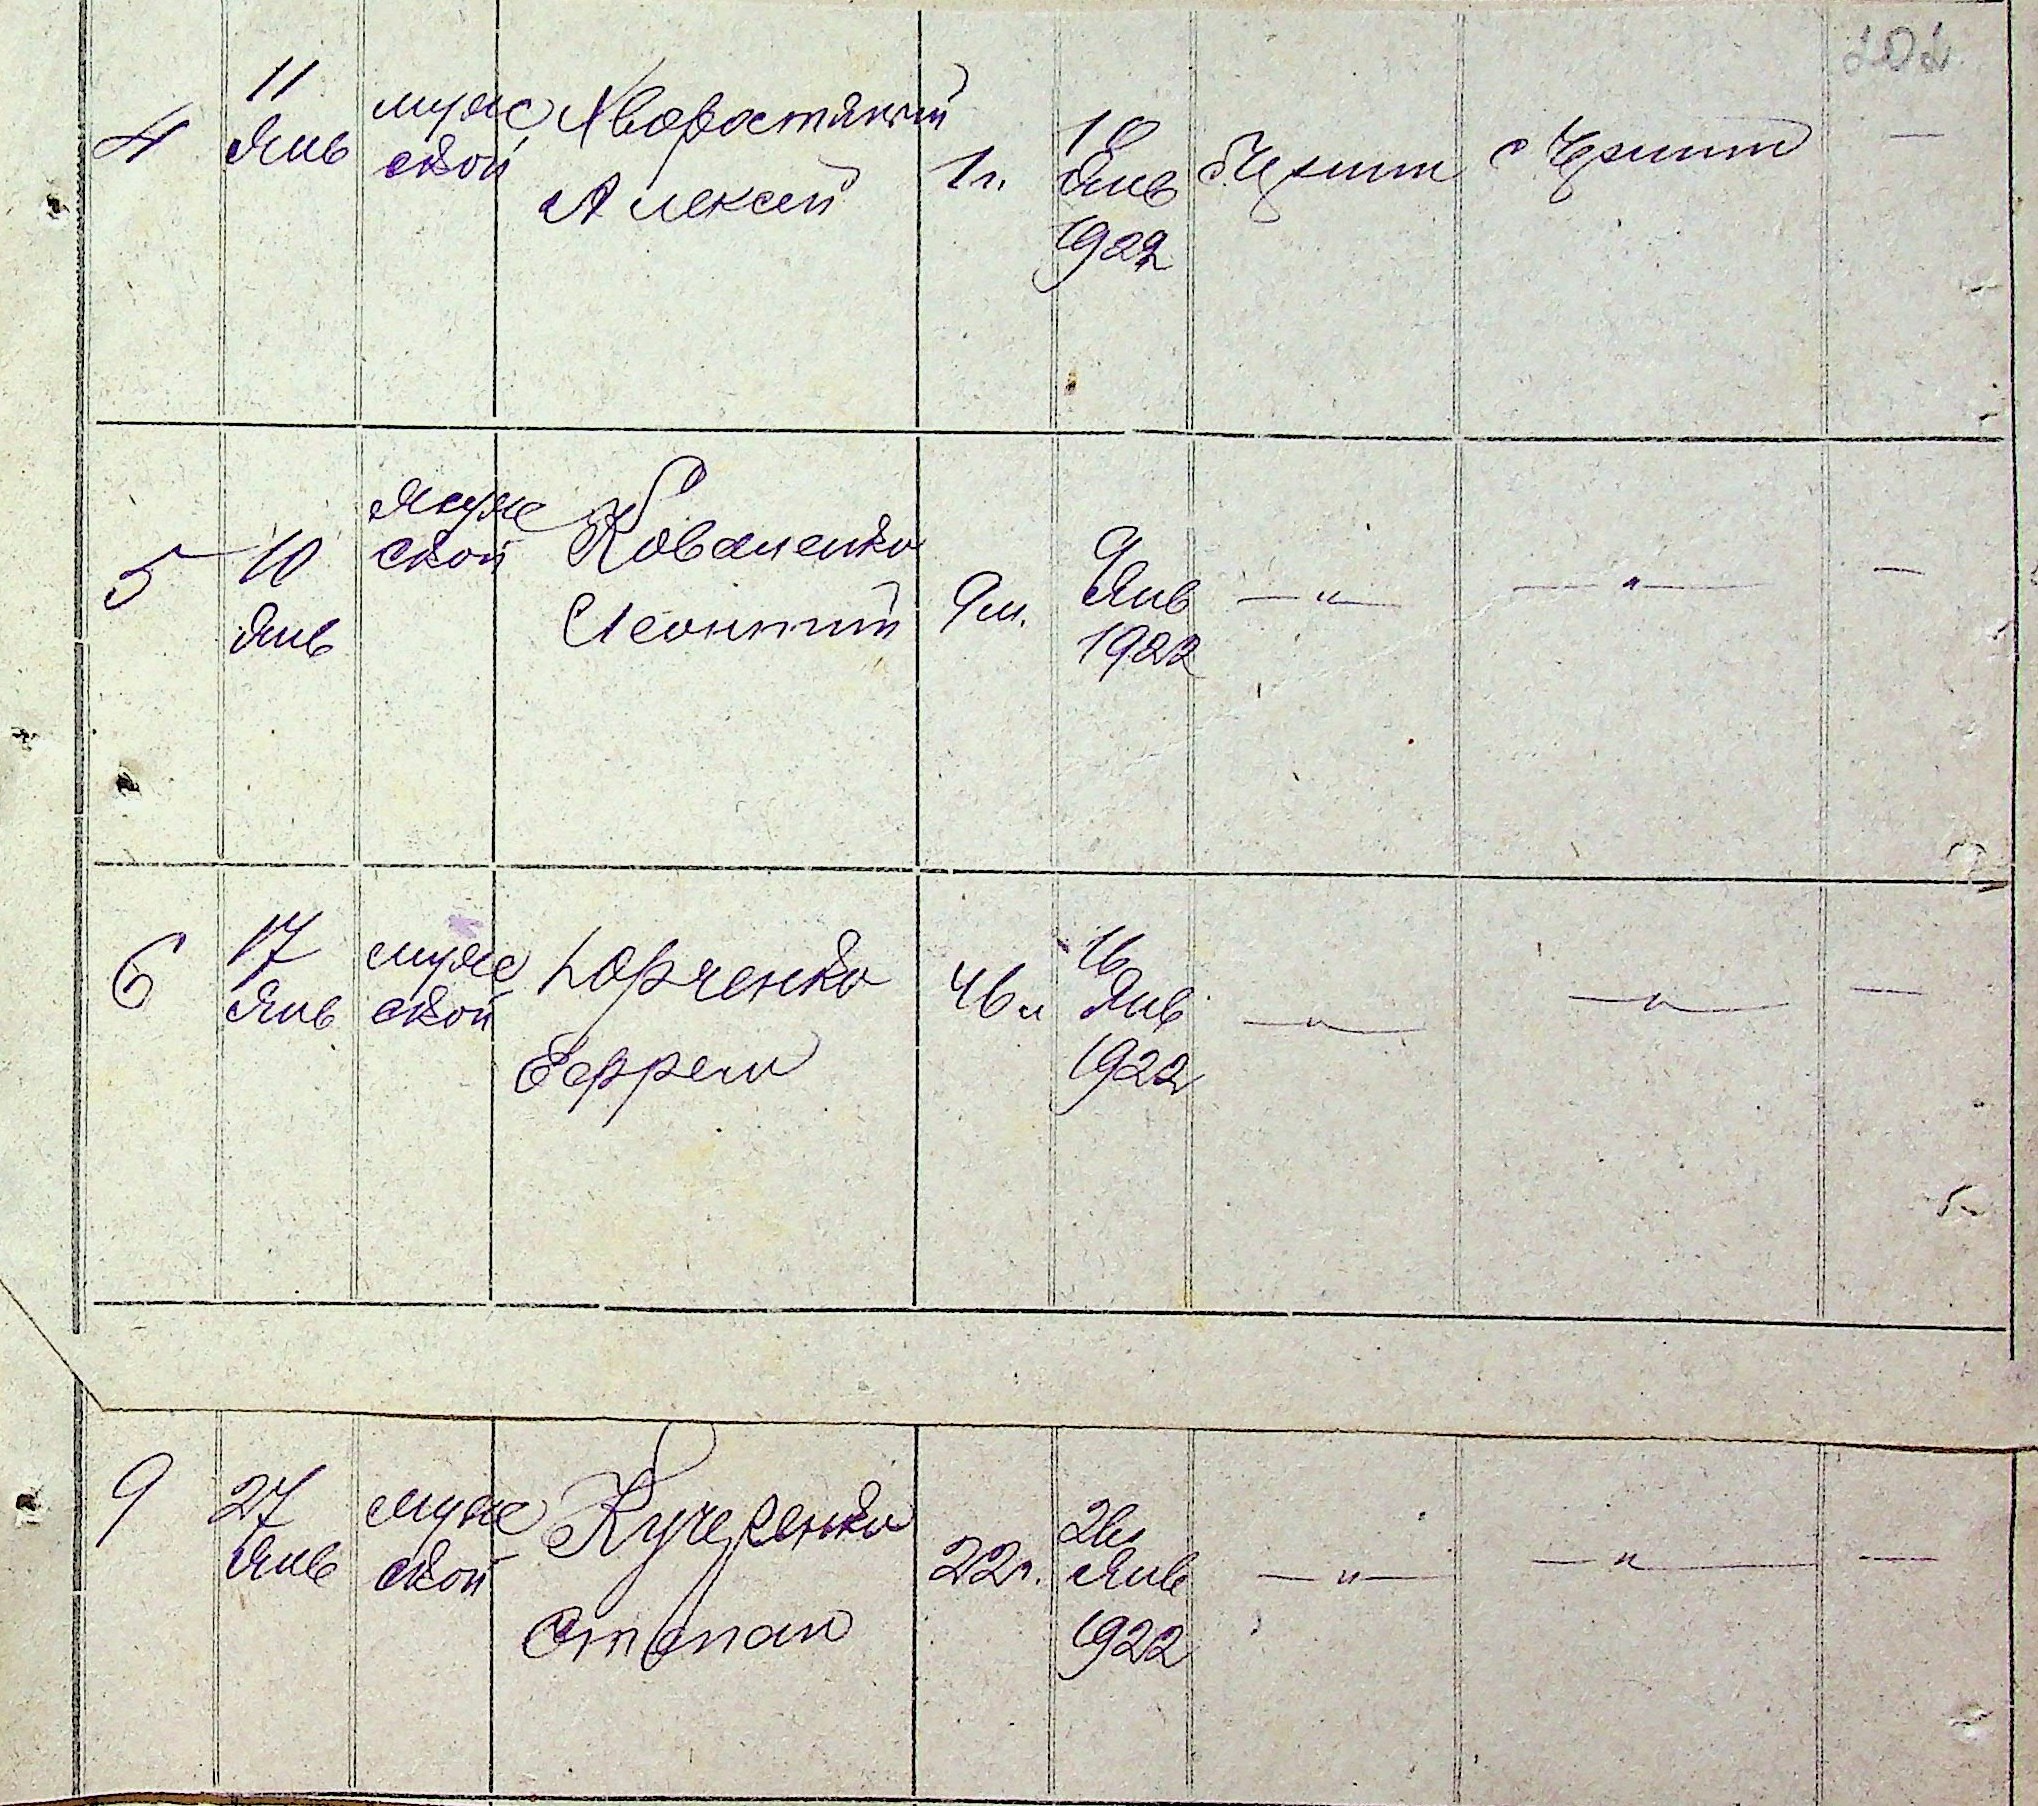 202
4
11
Янв
мужс
ской
Хворостяный
Алексей
1 г.
10
Янв
1922
5
10
Янв
мужс
ской
Коваленко
Леонтий
9 м.
9
Янв
1922
—„—
—„—
—
6
17
Янв
мужс
ской
Юрченко
Ефрем
46 л
16
Янв
1922
—„—
—„—
—
9
27
Янв
мужс
ской
Кучеренко
Степан
22 г.
26
Янв
1922
—„—
—„—
—